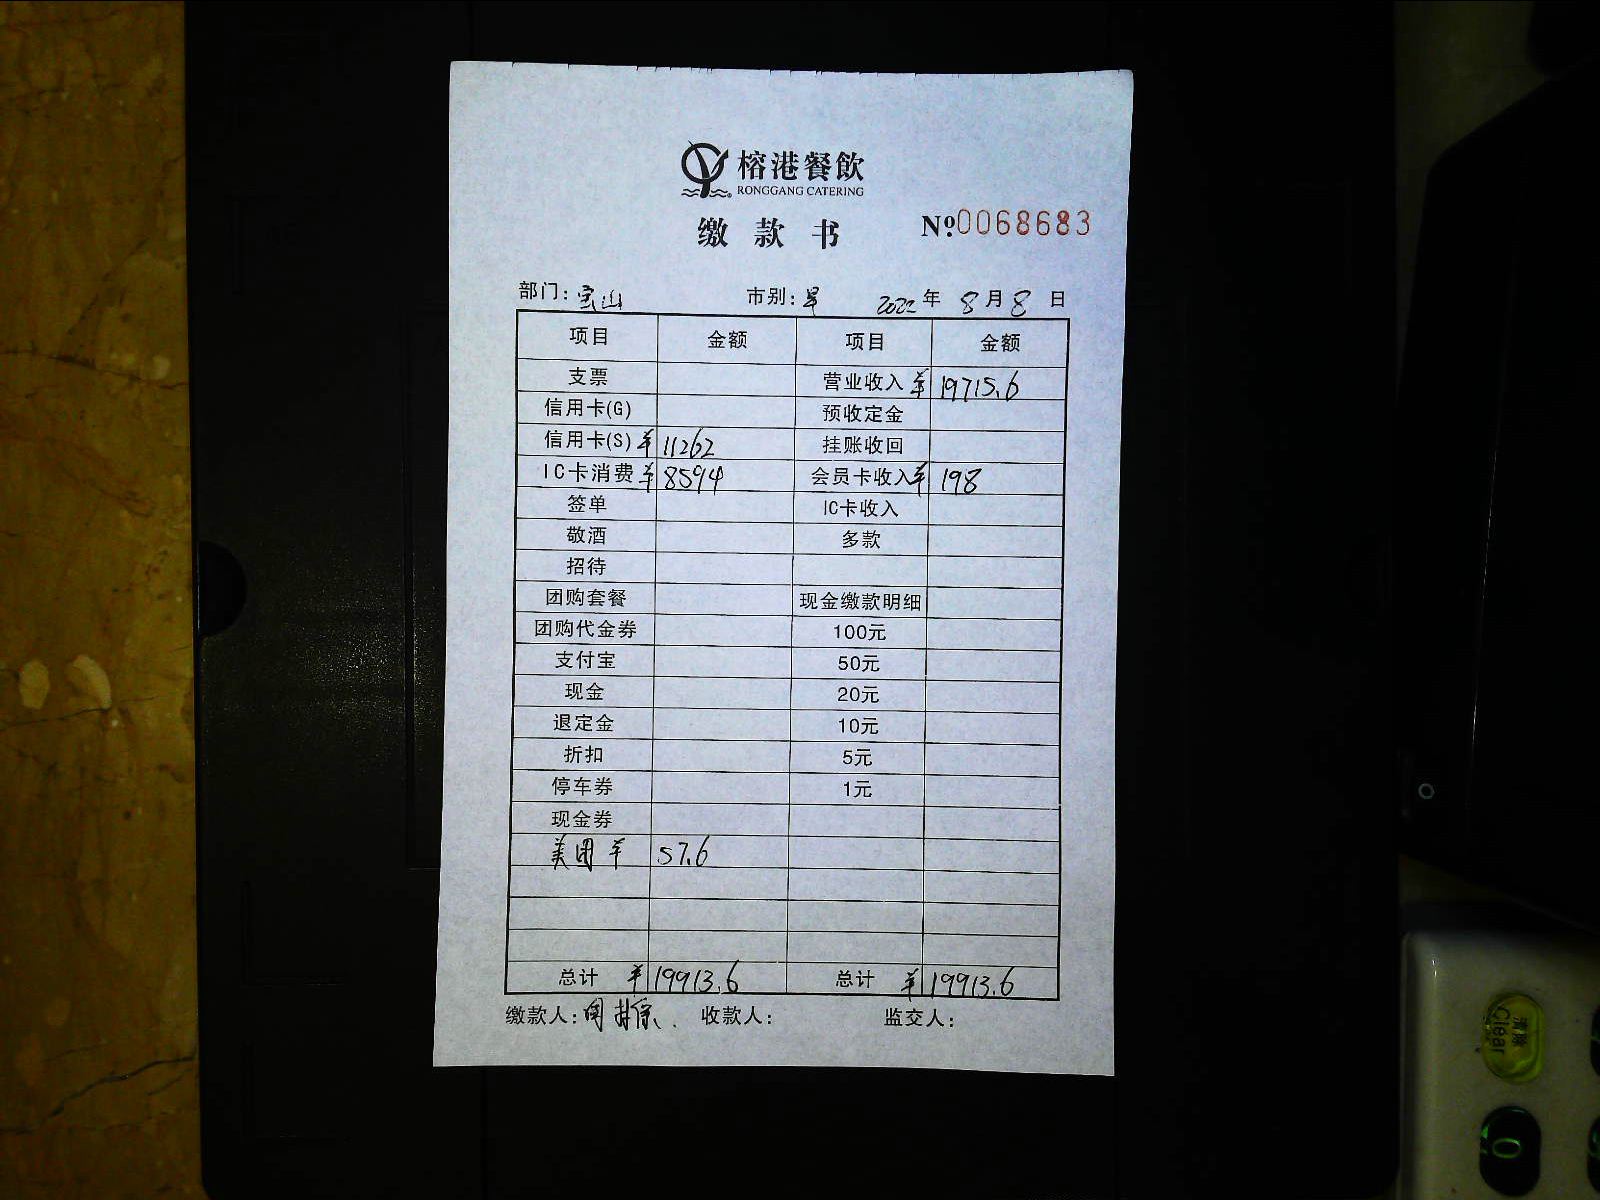 榕港餐飲
RONGGANG CATERING
缴款书 №0068683
部门：宝山 市别：早 2022年8月8日
项目 金额 项目 金额
支票 营业收入 ¥19715.6
信用卡(G) 预收定金
信用卡(S) ¥11262 挂账收回
IC卡消费 ¥8594 会员卡收入 ¥198
签单 IC卡收入
敬酒 多款
招待
团购套餐 现金缴款明细
团购代金券 100元
支付宝 50元
现金 20元
退定金 10元
折扣 5元
停车券 1元
现金券
美团 ¥57.6
总计 ¥19913.6 总计 ¥19913.6
缴款人： 收款人： 监交人：
清除
Clear
0